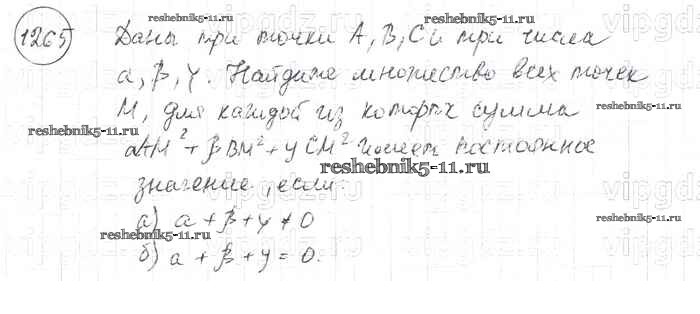 1265 Даны три точки А, В, С и три числа
α, β, γ. Найдите множество всех точек
М, для каждой из которых сумма
αАМ² + βВМ² + γСМ² имеет постоянное
значение, если:
а) α + β + γ ≠ 0
б) α + β + γ = 0.
reshebnik5-11.ru
reshebnik5-11.ru
reshebnik5-11.ru
reshebnik5-11.ru
reshebnik5-11.ru
reshebnik5-11.ru